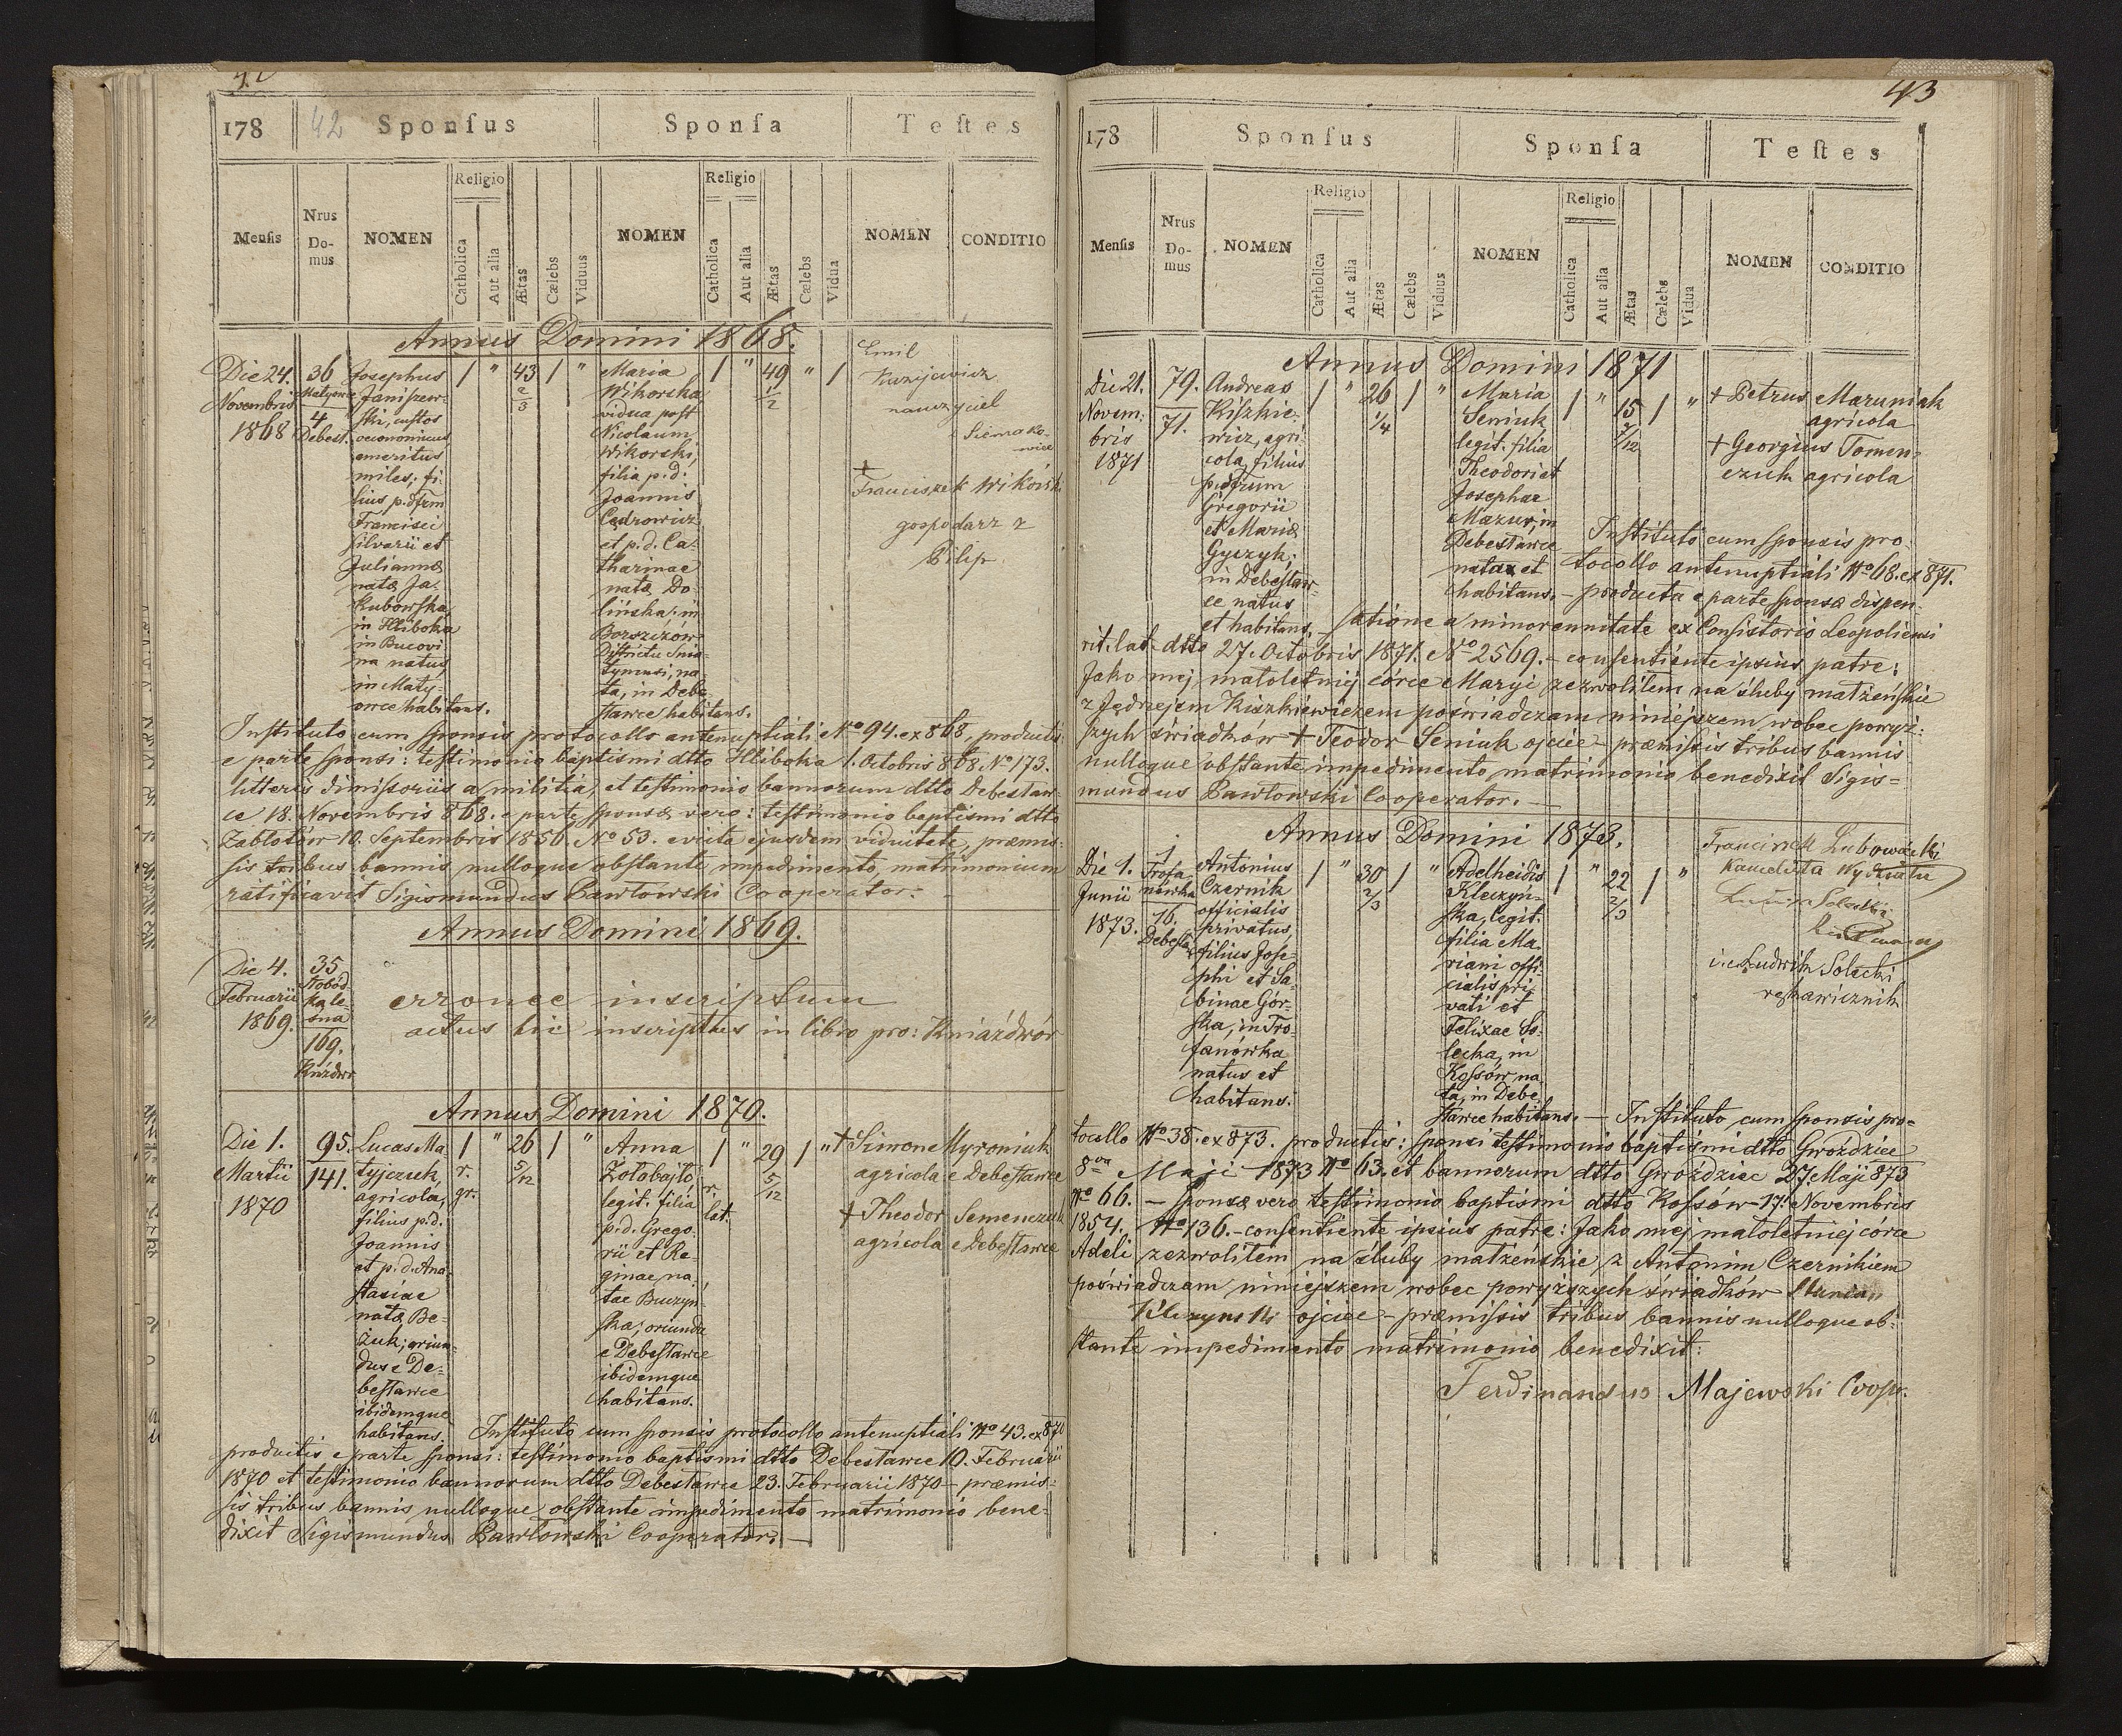 42
178 42 Sponsus Sponsa Testes
Religio Religio
Mensis Nrus Domus NOMEN Catholica Aut alia Ætas Cælebs Viduus NOMEN Catholica Aut alia Ætas Cælebs Vidua NOMEN CONDITIO
Annus Domini 1868.
Die 24.
Novembris
1868
36
4
Debest.
Josephus
Janiszew-
ski, custos
oeconomicus
emeritus
miles, fi-
lius p. dfrm
Francisci
silvarii et
Juliannæ
natæ Ja-
kubowska,
in Hliboka
in Bucovi
na natus
in Maty-
owce habitans.
1 " 43 2/3 1 "
Maria
Wikorska
vidua post
Nicolaum
Wikorski,
filia p. d.
Joannis
Cędrowicz
et p. d. Ca-
tharinae
natæ Do-
lińska; in
Borszczów
Districtu Snia-
tynensi, na
ta, in Debe
stawce habitans.
1 " 49 1/2 " 1
Emil
nauczyciel
Siemako-
wice
+
Franciszek Wikórski
gospodarz z
Pilip
Instituto cum sponsis protocollo antenuptiali No 94. ex 868, productis
e parte sponsi: testimonio baptismi dtto Hliboka 1. Octobris 868 No 173.
litteris dimissoriis a militia, et testimonio bannorum dtto Debestaw-
ce 18. Novembris 868. e parte sponsæ vero: testimonio baptismi dtto
Zabłotów 10. Septembris 1856. No 53. evicta ejusdem viduitate, præmis-
sis tribus bannis nulloque obstante impedimento, matrimonium
ratificavit Sigismundus Pawłowski Cooperator.
Annus Domini 1869.
Die 4.
Februarii
1869.
35
Słobód
ka le-
śna
169.
Kniźdwr
erronee inscriptum
actus hic inscriptus in libro pro: Kniaźdwór
Annus Domini 1870.
Die 1.
Martii
1870
95.
141.
Lucas Ma-
tyjczuk,
agricola,
filius p. d.
Joannis
et p. d. Ana-
stasiae
natæ Be-
żuk; oriun-
dus e De-
bestawce
ibidemque
habitans.
1 r. gr. " 26 5/12 1 "
Anna
Zołobajło
legit. filia
p. d. Grego-
rii et Re-
ginae, na-
tae Buczyń-
ska; oriunda
e Debestawce
ibidemque
habitans.
1 r. lat. " 29 5/12 1 "
+ Simone Myroniuk
agricola e Debestawce
+ Theodor Semenczuk
agricola e Debestawce
Instituto cum sponsis protocollo antenuptiali No 43. ex 870
productis e parte sponsi: testimonio baptismi dtto Debestawce 10. Februarii
1870 et testimonio bannorum dtto Debestawce 23. Februarii 1870 – præmis-
sis tribus bannis nulloque obstante impedimento matrimonio bene-
dixit Sigismundus Pawłowski Cooperator. —
43
178 Sponsus Sponsa Testes
Religio Religio
Mensis Nrus Domus NOMEN Catholica Aut alia Ætas Cælebs Viduus NOMEN Catholica Aut alia Ætas Cælebs Vidua NOMEN CONDITIO
Annus Domini 1871
Die 21.
Novem-
bris
1871
79.
71.
Andreas
Kiszkie-
wicz, agri-
cola, filius
p. dfrum
Gregorii
et Mariæ
Gyczyk;
in Debestaw-
ce natus
et habitans.
1 " 26 1/4 1 "
Maria
Seniuk
legit. filia
Theodori et
Josephae
Mazur, in
Debestawce
nata et
habitans. –
1 " 15 7/12 1 "
+ Petrus Maruniak
agricola
+ Georgius Tomen-
czuk agricola
Instituto cum sponsis pro-
tocollo antenuptiali No 68. ex 871.
producta e parte sponsæ dispen-
satione a minorennitate ex Consistorio Leopoliensi
rit. lat. dtto 27. Octobris 1871. No 2569. – consentiente ipsius patre:
Jako mej małoletniej córce Maryi zezwoliłem na śluby małżeńskie
z Jędrzejem Kiszkiewiczem poświadczam niniejszem wobec powyż-
szych świadków + Teodor Seniuk ojciec – præmissis tribus bannis
nulloque obstante impedimento matrimonio benedixit Sigis-
mundus Pawłowski Cooperator. —
Annus Domini 1873.
Die 1.
Junii
1873.
1
Trofa
nówka
16.
Debesła
Antonius
Czernik
officialis
privatus,
filius Jose-
phi et Sa-
binae Gór-
ska, in Tro-
fanówka
natus et
habitans.
1 " 30 2/3 1 "
Adelheidis
Kleczyń-
ska, legit.
filia Ma-
riani offi-
cialis pri-
vati et
Felixae So-
lecka, in
Kossów na
ta, in Debe
stawce habitans. –
1 " 22 2/3 1 "
Franciszek
Kancelista Wydziału
i. e. Ludwik Solecki
rękawicznik
Instituto cum sponsis pro-
tocollo No 38. ex 873. productis: sponsi testimonio baptismi dtto Gwoździec
8va Maji 1873 No 63. et bannorum dtto Gwoździec 27. Maji 873
No 66. – sponsæ vero testimonio baptismi dtto Kossów 17. Novembris
1854. No 136. – consentiente ipsius patre: Jako mej małoletniej córce
Adeli zezwoliłem na śluby małżeńskie z Antonim Czernikiem
poświadczam niniejszem wobec powyższych świadków Marian
Kleczyński ojciec – præmissis tribus bannis nulloque ob-
stante impedimento matrimonio benedixit:
Ferdinandus Majewski Coop.